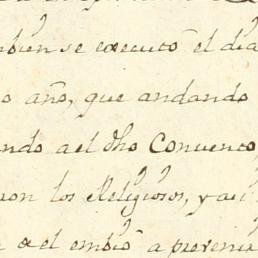 mbien se executó el dia
o año, que andando
ndo a el dho Convento
ron los Religiosos, y asi
a el embió a prevenir